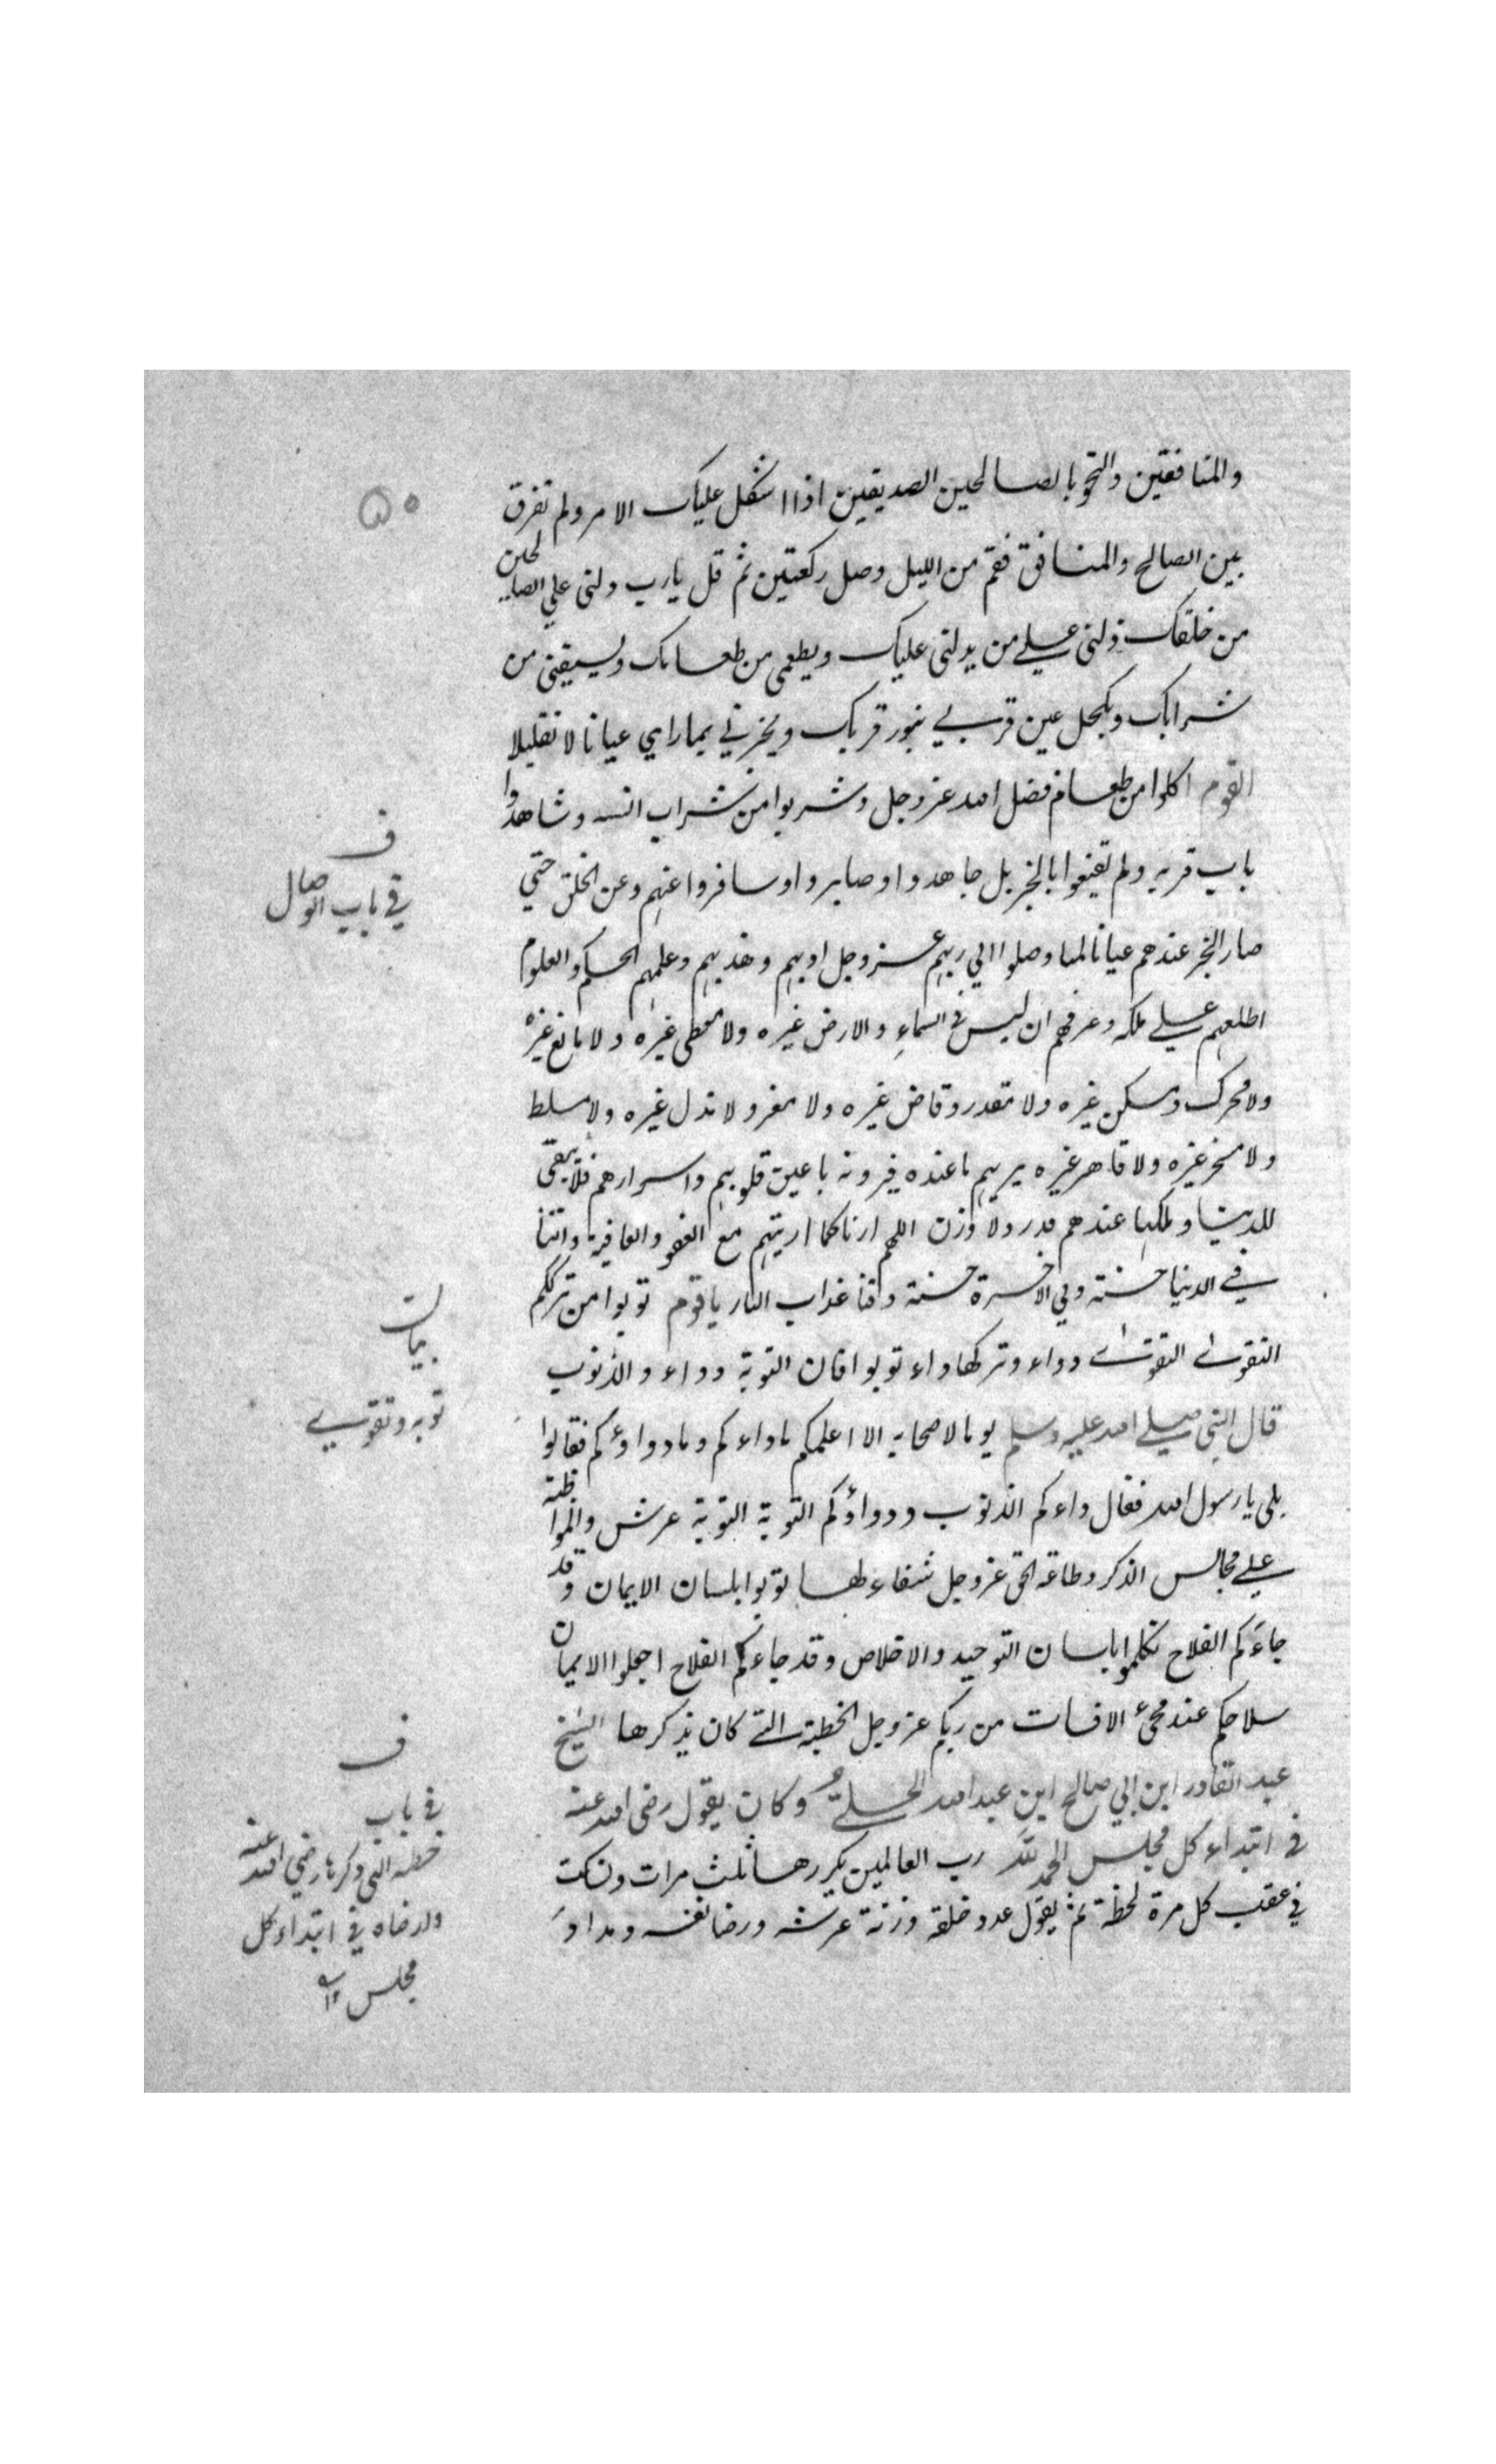 والمنافقين والتحق بالصالحين الصديقين اذا اشكل عليك الامر ولم تفرق
بين الصالح والمنافق فقم من الليل وصل ركعتين ثم قل يارب دلنى علي الصالحين
من خلقك دلنى علي من يدلنى عليك ويطعمى من طعامك ويسيقنى من
شرابك ويكحل عين قربي بنور قربك ويخبرني بماراي عيانا لا تقليلا
القوم اكلوا من طعام فضل الله عز وجل وشربوا من شراب انسه وشاهدوا
باب قربه ولم تقنعوا بالخبر بل جاهدوا وصابروا وسافروا عنهم وعن الخلق حتي
صار الخبر عندهم عيانا لما وصلوا الي ربهم عز وجل ادبهم وهذبهم وعلمهم الحكم والعلوم
اطلعهم علي ملكه وعرفهم ان ليس في السماء والارض غيره ولا معطى غيره ولا مانع غيره
ولا محرك ومسكن غيره ولا مقدر وقاض غيره ولا معز ولا مذل غيره ولا مسلط
ولا مسخر غيره ولا قاهر غيره يريهم ماعنده فيرونه باعين قلوبهم واسرارهم فلا يبقى
للدنيا وملكها عندهم قدر ولا وزن اللهم ارنا كما اريتهم مع العفو والعافية واتنا
في الدنيا حسنة وفي الاخرة حسنة وقنا عذاب النار ياقوم توبوا من ترككم
التقوى التقوى دواء وتركها داء توبوا فان التوبة دواء والذنوب
قال النبى صلي الله عليه وسلم يوما لاصحابه الا اعلمكم ماداءكم ومادواؤكم فقالوا
بلى يارسول الله فقال داءكم الذنوب ودواؤكم التوبة التوبة عرش والمواظبة
علي مجالس الذكر وطاعة الحق عز وجل شفاء لها توبوا بلسان الايمان وقد
جاءكم الفلاح تكلموا بلسان التوحيد والاخلاص وقد جاءكم الفلاح اجعلوا الايمان
سلاحكم عند مجئ الافات من ربكم عز وجل الخطبة التي كان يذكرها الشيخ
عبد القادر ابن ابي صالح ابن عبد الله الجيلي وكان يقول رضى الله عنه
في ابتداء كل مجلس الحمد لله رب العالمين يكررها ثلث مرات ويسكت
في عقب كل مرة لحظة ثم يقول عدد خلقه وزنة عرشه ورضا نفسه ومداد
٥٥
ف
في باب الوصال
بيان
توبه وتقوي
ف
في باب
خطبه التى ذكرها رضي الله عنه
وارضاه في ابتداء كل
مجلس